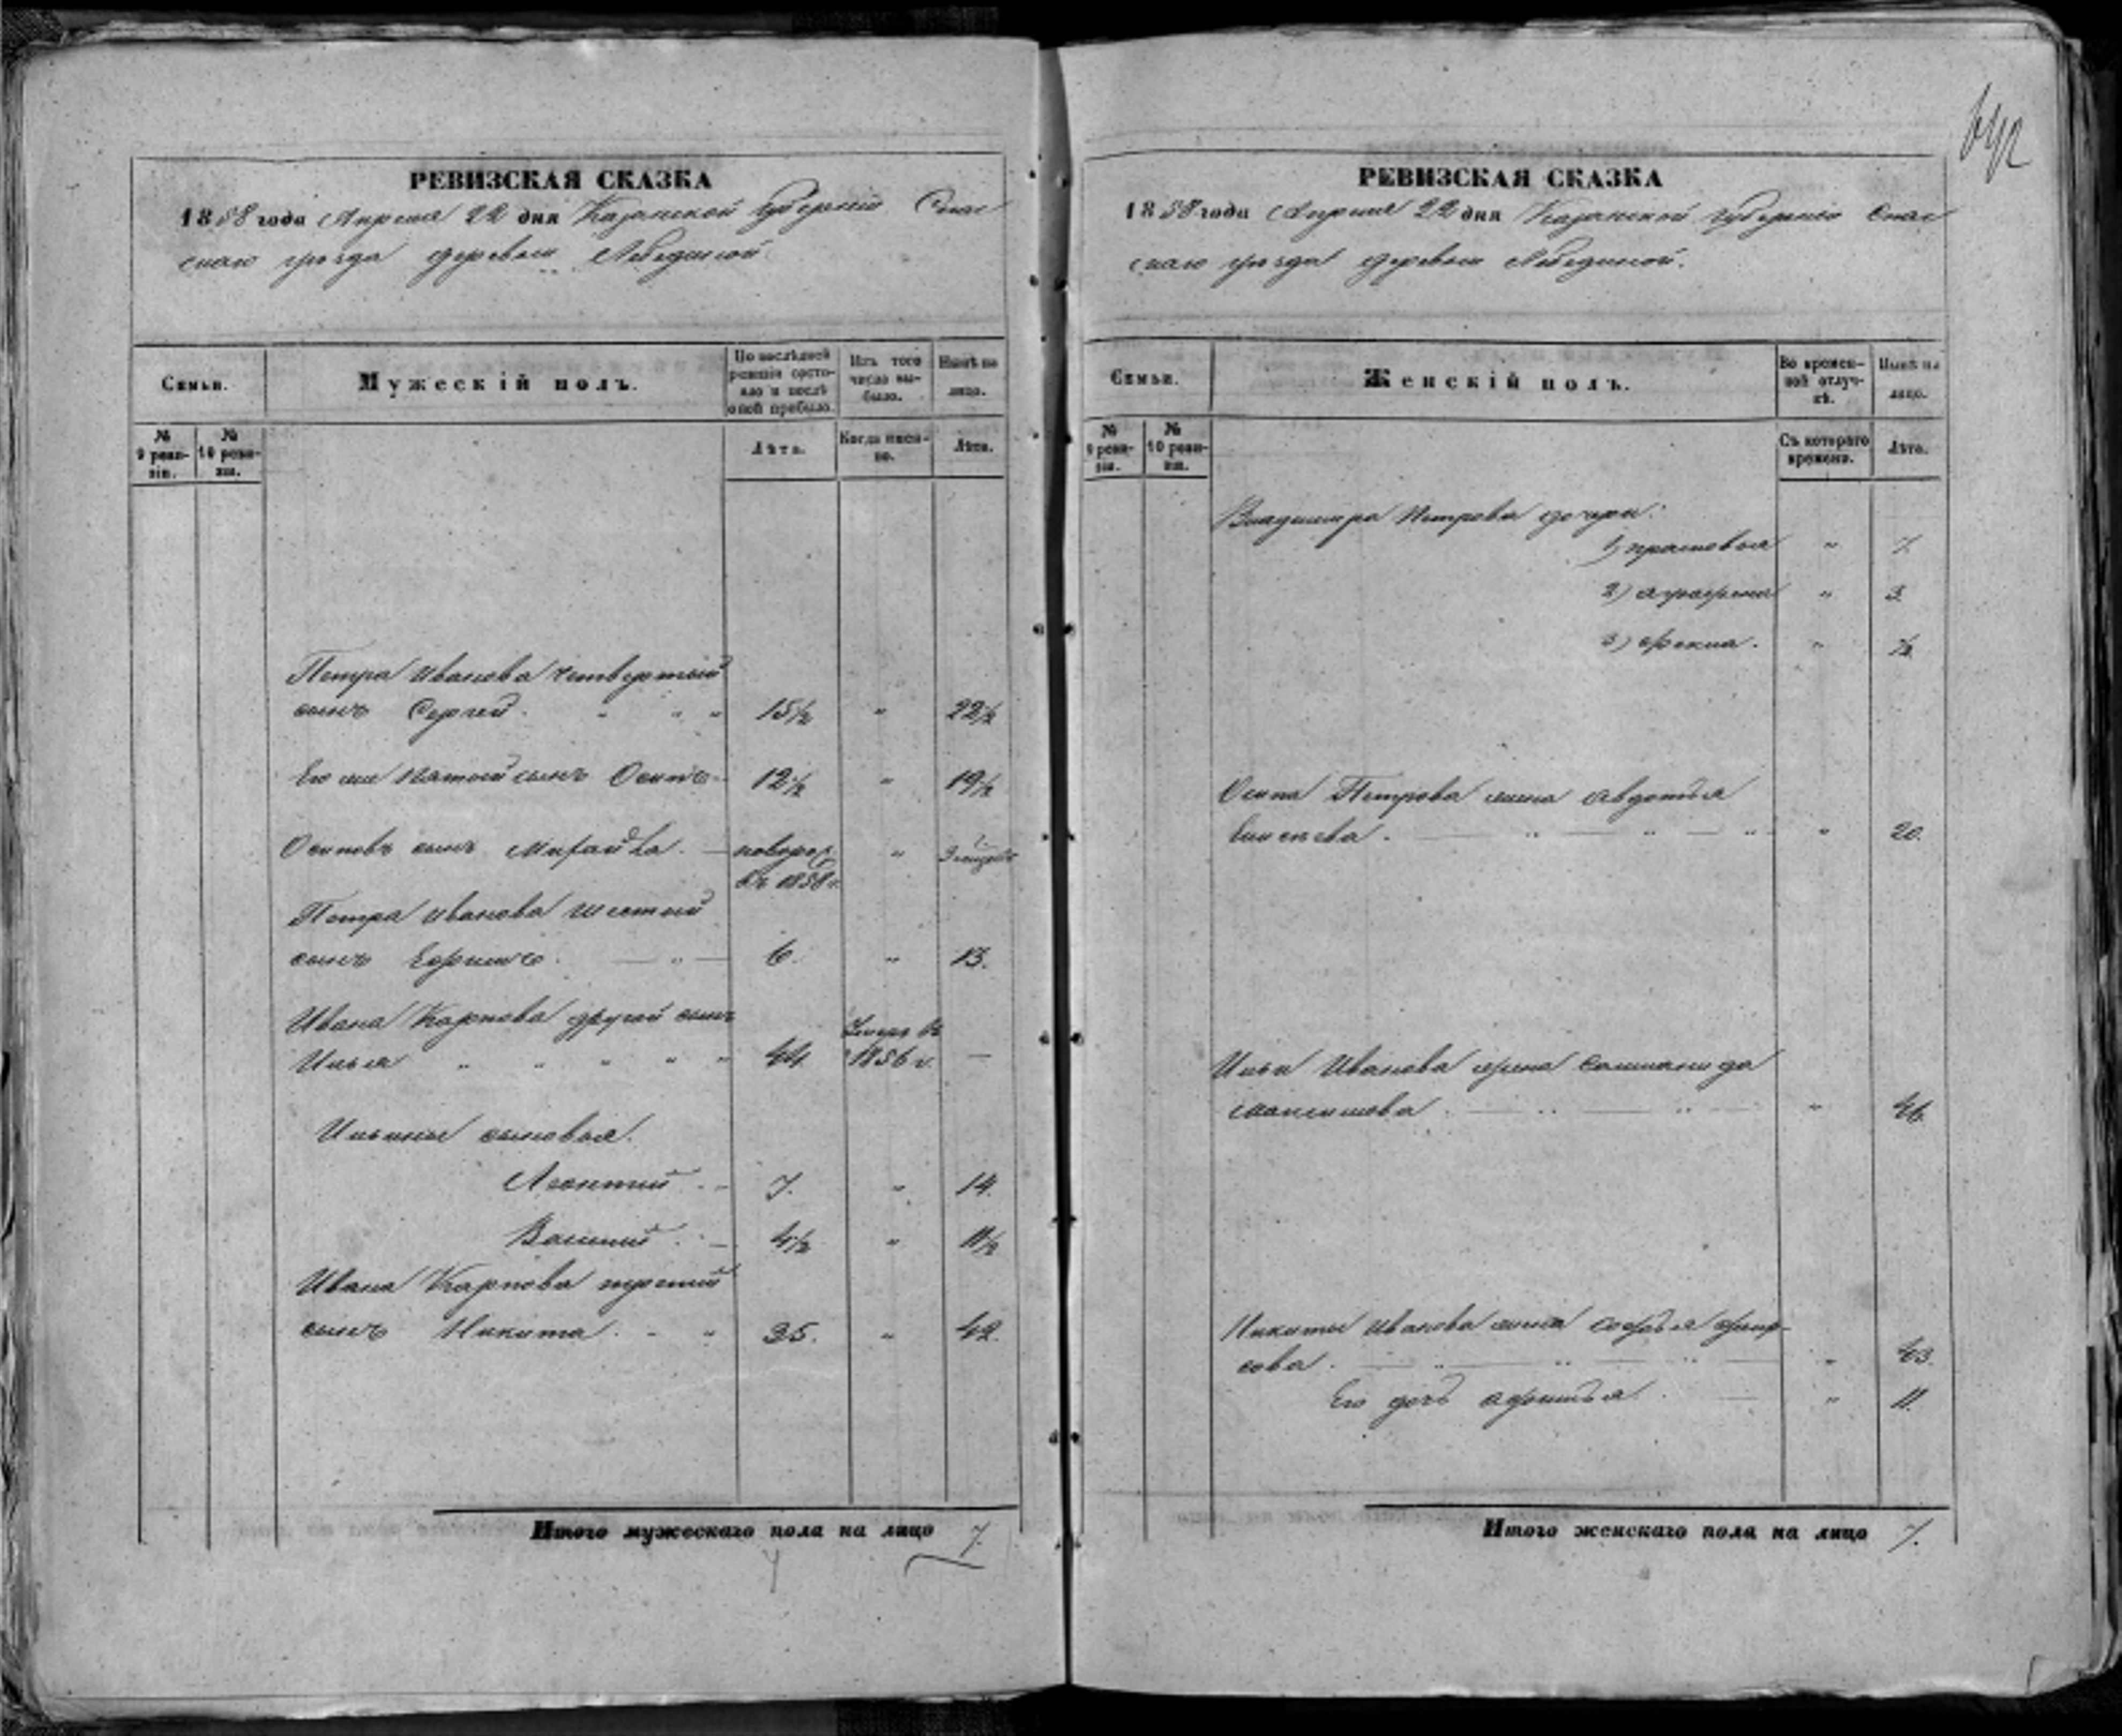 РЕВИЗСКАЯ СКАЗКА
1858 года Апреля 22 дня Казанской губернiи Спас
скаго уѣзда деревни Лебединой.
Семьи.
Мужескiй полъ.
По послѣдней ревизiи состояло и послѣ оной прибыло.
Изъ того числа выбыло.
Нынѣ на лицо.
№ 9 ревизiи.
№ 10 ревизiи.
Лѣта.
Когда именно.
Лѣта.
Петра Иванова четвертый
сынъ Сергей. " " " 15½ " 22½
Его же пятый сынъ Осипъ 12½ " 19½
Осиповъ сынъ Михайла. — новорож. " 3 мѣсяц
въ 1858 г.
Петра Иванова шестой
сынъ Ефимъ. — " — 6. " 13.
Ивана Карпова другой сынъ
Илья " " " " " 44. Умеръ въ 1856 г. —
Ильины сыновья.
Леонтий - - 7. " 14.
Василий. - 4½ " 11½
Ивана Карпова третий
сынъ Никита. - " 35. " 42.
Итого мужескаго пола на лицо 7.
642
РЕВИЗСКАЯ СКАЗКА
1858 года Апреля 22 дня Казанской губернiи Спас
скаго уѣзда деревни Лебединой.
Семьи.
Женскiй полъ.
Во временной отлучкѣ.
Нынѣ на лицо.
№ 9 ревизiи.
№ 10 ревизiи.
Съ котораго времени.
Лѣта.
Владимира Петрова дочери:
1) Прасковья " 7.
2) Аграфена " 3.
3) Фекла. " ½
Осипа Петрова жена Авдотья
Елисѣева. — " — " — " " 20.
Ильи Иванова жена Саламанида
Максимова. — " — " — " 46.
Никиты Иванова жена Софья Фир-
сова. — " — " — " — " 43.
Его дочь Афимья. — " 11.
Итого женскаго пола на лицо 7.